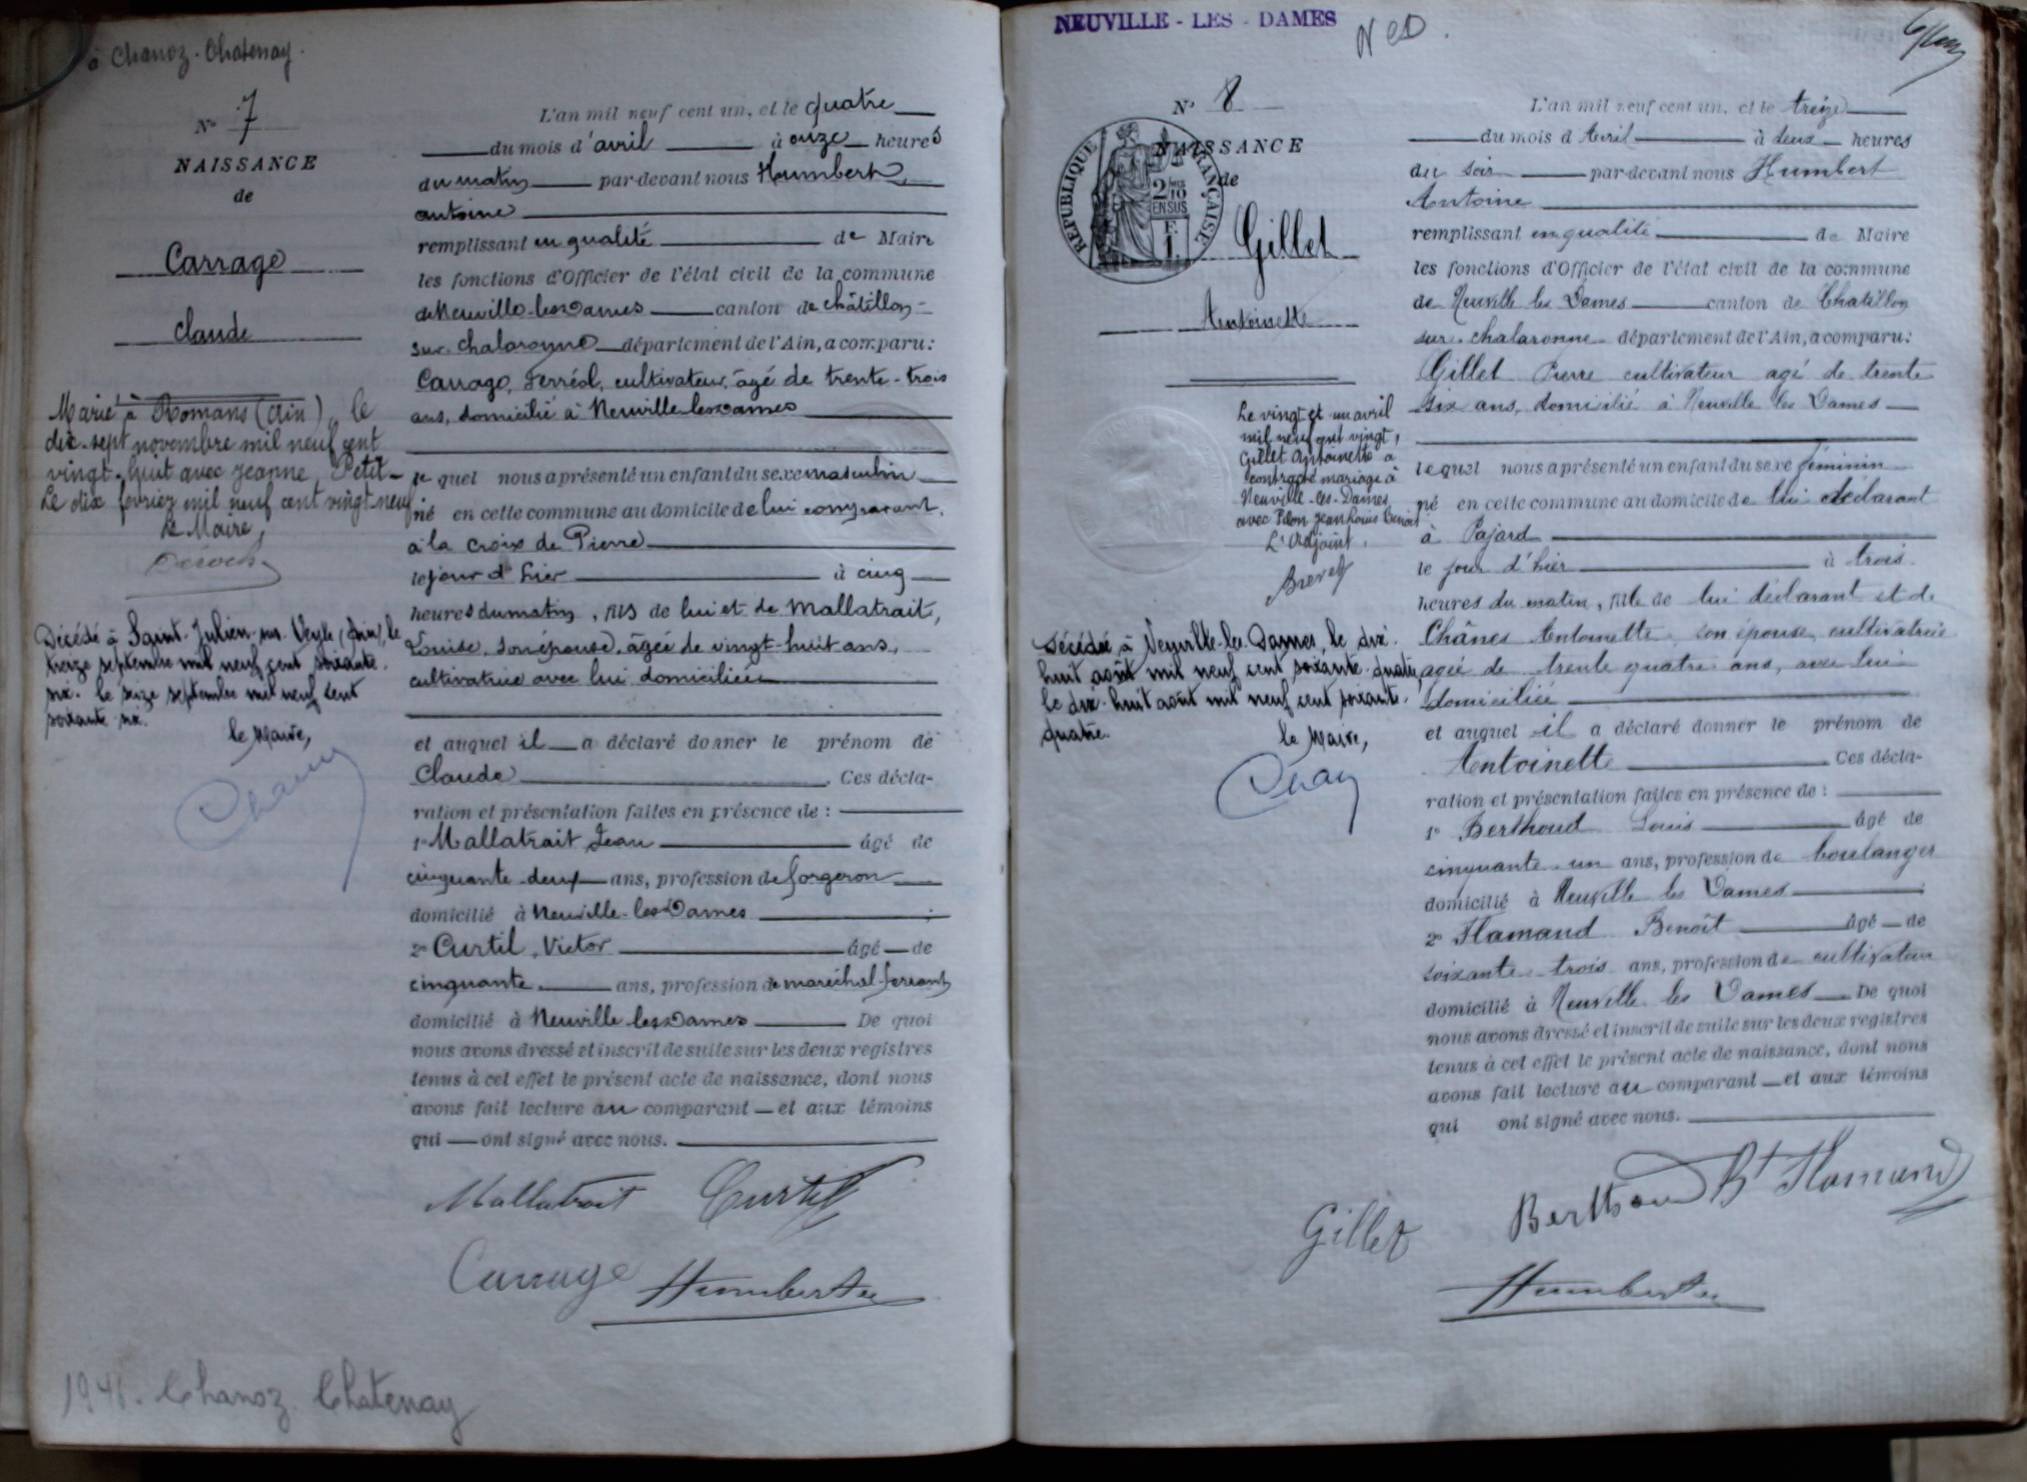 à Chanoz-Chatenay.
N° 7
NAISSANCE
de
Carrage
Claude
Marié à Romans (Ain), le
dix-sept novembre mil neuf cent
vingt-huit avec Jeanne Petit-
Le dix février mil neuf cent vingt-neuf
Le Maire,
Décédé à Saint-Julien-sur-Veyle (Ain), le
treize septembre mil neuf cent soixante-
six. Le seize septembre mil neuf cent
soixante six.
le Maire,
L'an mil neuf cent un, et le quatre
du mois d'avril à onze heures
du matin par-devant nous Humbert,
antoine
remplissant en qualité de Maire
les fonctions d'Officier de l'état civil de la commune
de Neuville-les-Dames canton de Châtillon-
sur-Chalaronne département de l'Ain, a comparu:
Carrage, Ferréol, cultivateur, âgé de trente-trois
ans, domicilié à Neuville-les-Dames
le quel nous a présenté un enfant du sexe masculin
né en cette commune au domicile de lui comparant,
à la croix de Pierre
le jour d'hier à cinq
heures du matin, fils de lui et de Mallatrait,
Louise, son épouse, âgée de vingt-huit ans,
cultivatrice avec lui domiciliée
et auquel il a déclaré donner le prénom de
Claude Ces décla-
ration et présentation faites en présence de:
1° Mallatrait, Jean âgé de
cinquante-deux ans, profession de forgeron
domicilié à Neuville-les-Dames;
2° Curtil, Victor âgé de
cinquante ans, profession de maréchal-ferrant
domicilié à Neuville les Dames De quoi
nous avons dressé et inscrit de suite sur les deux registres
tenus à cet effet le présent acte de naissance, dont nous
avons fait lecture au comparant et aux témoins
qui ont signé avec nous.
Mallatrait Curtil
Carrage Humbert
1941. Chanoz Chatenay
NEUVILLE-LES-DAMES
NLD.
N° 8
NAISSANCE
de
RÉPUBLIQUE FRANÇAISE
2 10
EN SUS
Gillet
Antoinette
Le vingt et un avril
mil neuf cent vingt,
Gillet Antoinette a
contracté mariage à
Neuville-les-Dames
avec Pilon Jean Louis Benoit
L'Adjoint,
Décédée à Neuville-les-Dames, le dix-
huit août mil neuf cent soixante-quatre,
le dix-huit août mil neuf cent soixante-
quatre.
le Maire,
L'an mil neuf cent un, et le treize
du mois d'Avril à deux heures
du soir par-devant nous Humbert
Antoine
remplissant en qualité de Maire
les fonctions d'Officier de l'état civil de la commune
de Neuville les Dames canton de Chatillon
sur-chalaronne département de l'Ain, a comparu:
Gillet Pierre cultivateur agé de trente
six ans, domicilié à Neuville les Dames
lequel nous a présenté un enfant du sexe féminin
né en cette commune au domicile de lui déclarant
à Pajard
le jour d'hier à trois
heures du matin, fille de lui déclarant et de
Chânes Antoinette son épouse, cultivatrice
agée de trente quatre ans, avec lui
domiciliée
et auquel il a déclaré donner le prénom de
Antoinette Ces décla-
ration et présentation faites en présence de:
1° Berthoud Louis âgé de
cinquante-un ans, profession de boulanger
domicilié à Neuville les Dames;
2° Flamand Benoît âgé de
soixante-trois ans, profession de cultivateur
domicilié à Neuville les Dames De quoi
nous avons dressé et inscrit de suite sur les deux registres
tenus à cet effet le présent acte de naissance, dont nous
avons fait lecture au comparant et aux témoins
qui ont signé avec nous.
Gillet Berthoud Bt Flamand
Humbert